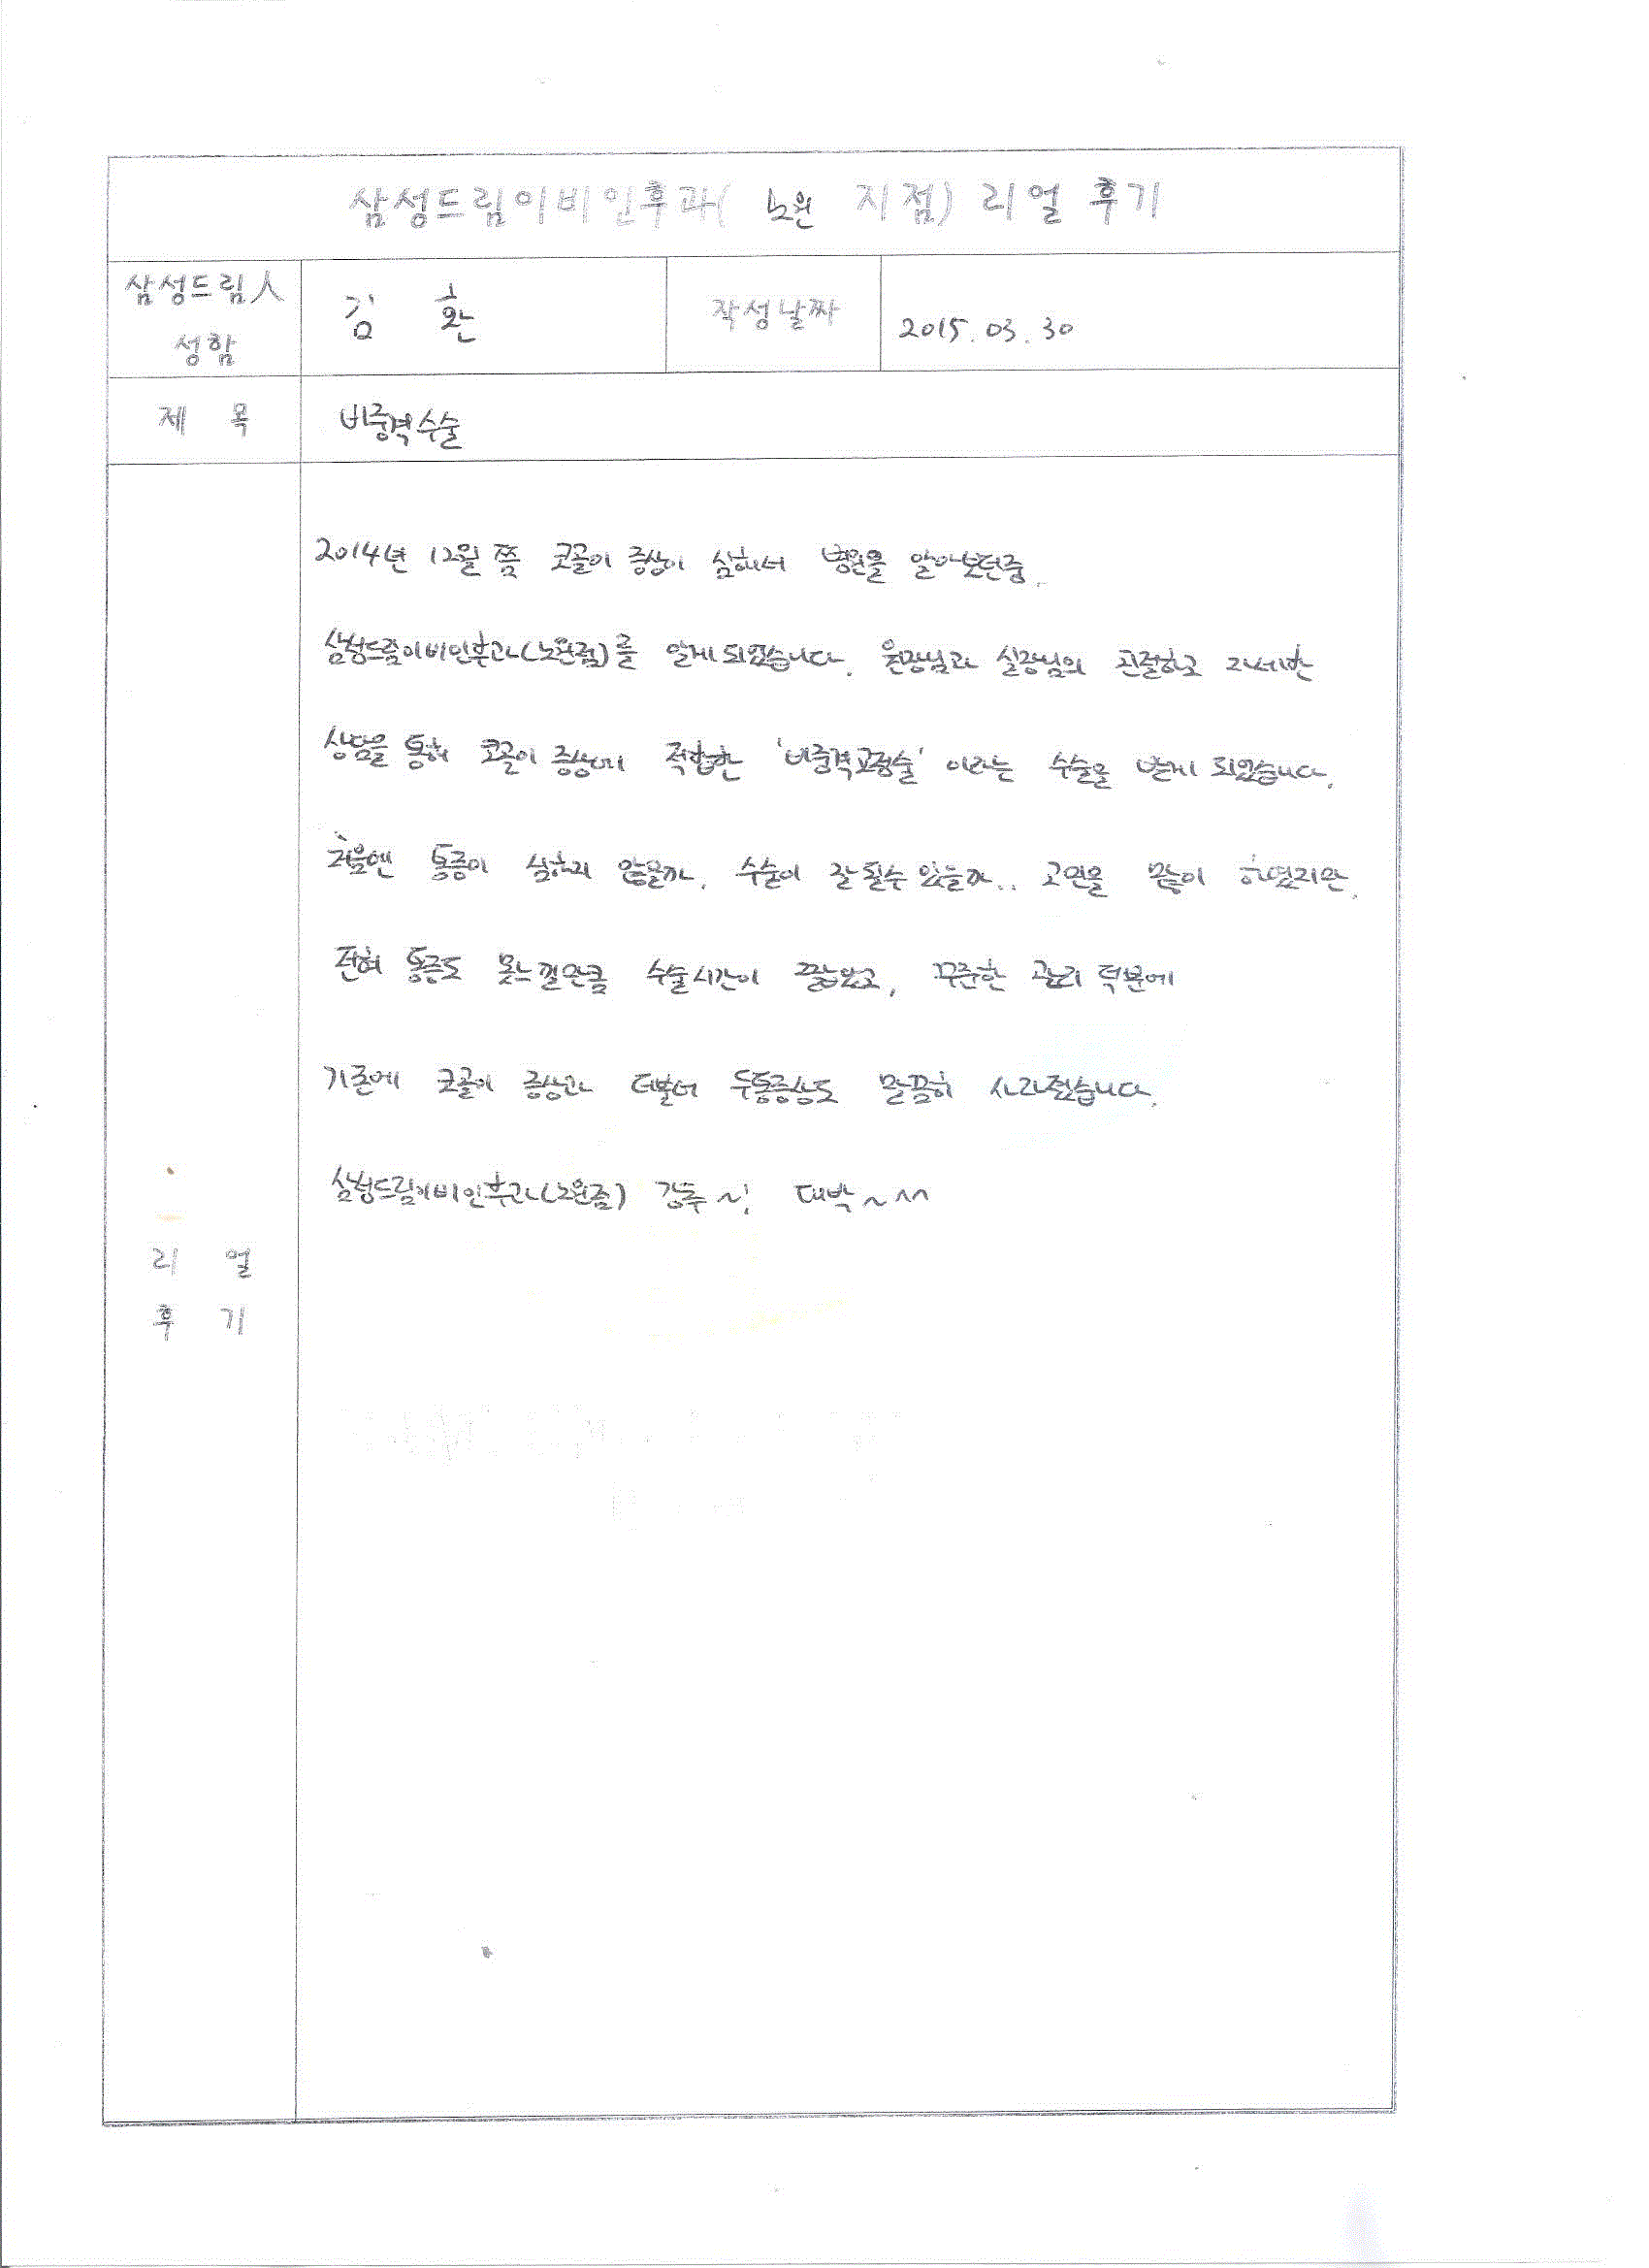 삼성드림이비인후과( 노원 지점) 리얼 후기
삼성드림人 성함
김 환
작성날짜
2015. 03. 30
제 목
비중격수술
리 얼 후 기
2014년 12월 쯤 코골이 증상이 심해서 병원을 알아보던중.
삼성드림이비인후과(노원점)를 알게 되었습니다. 원장님과 실장님의 친절하고 자세한
상담을 통해 코골이 증상에 적합한 '비중격교정술' 이라는 수술을 받게 되었습니다.
처음엔 통증이 심하지 않을까, 수술이 잘 될수 있을까.. 고민을 많이 하였지만,
전혀 통증도 못느낄만큼 수술시간이 짧았고, 꾸준한 관리 덕분에
기존에 코골이 증상과 더불어 두통증상도 말끔히 사라졌습니다.
삼성드림이비인후과(노원점) 강추~! 대박~^^